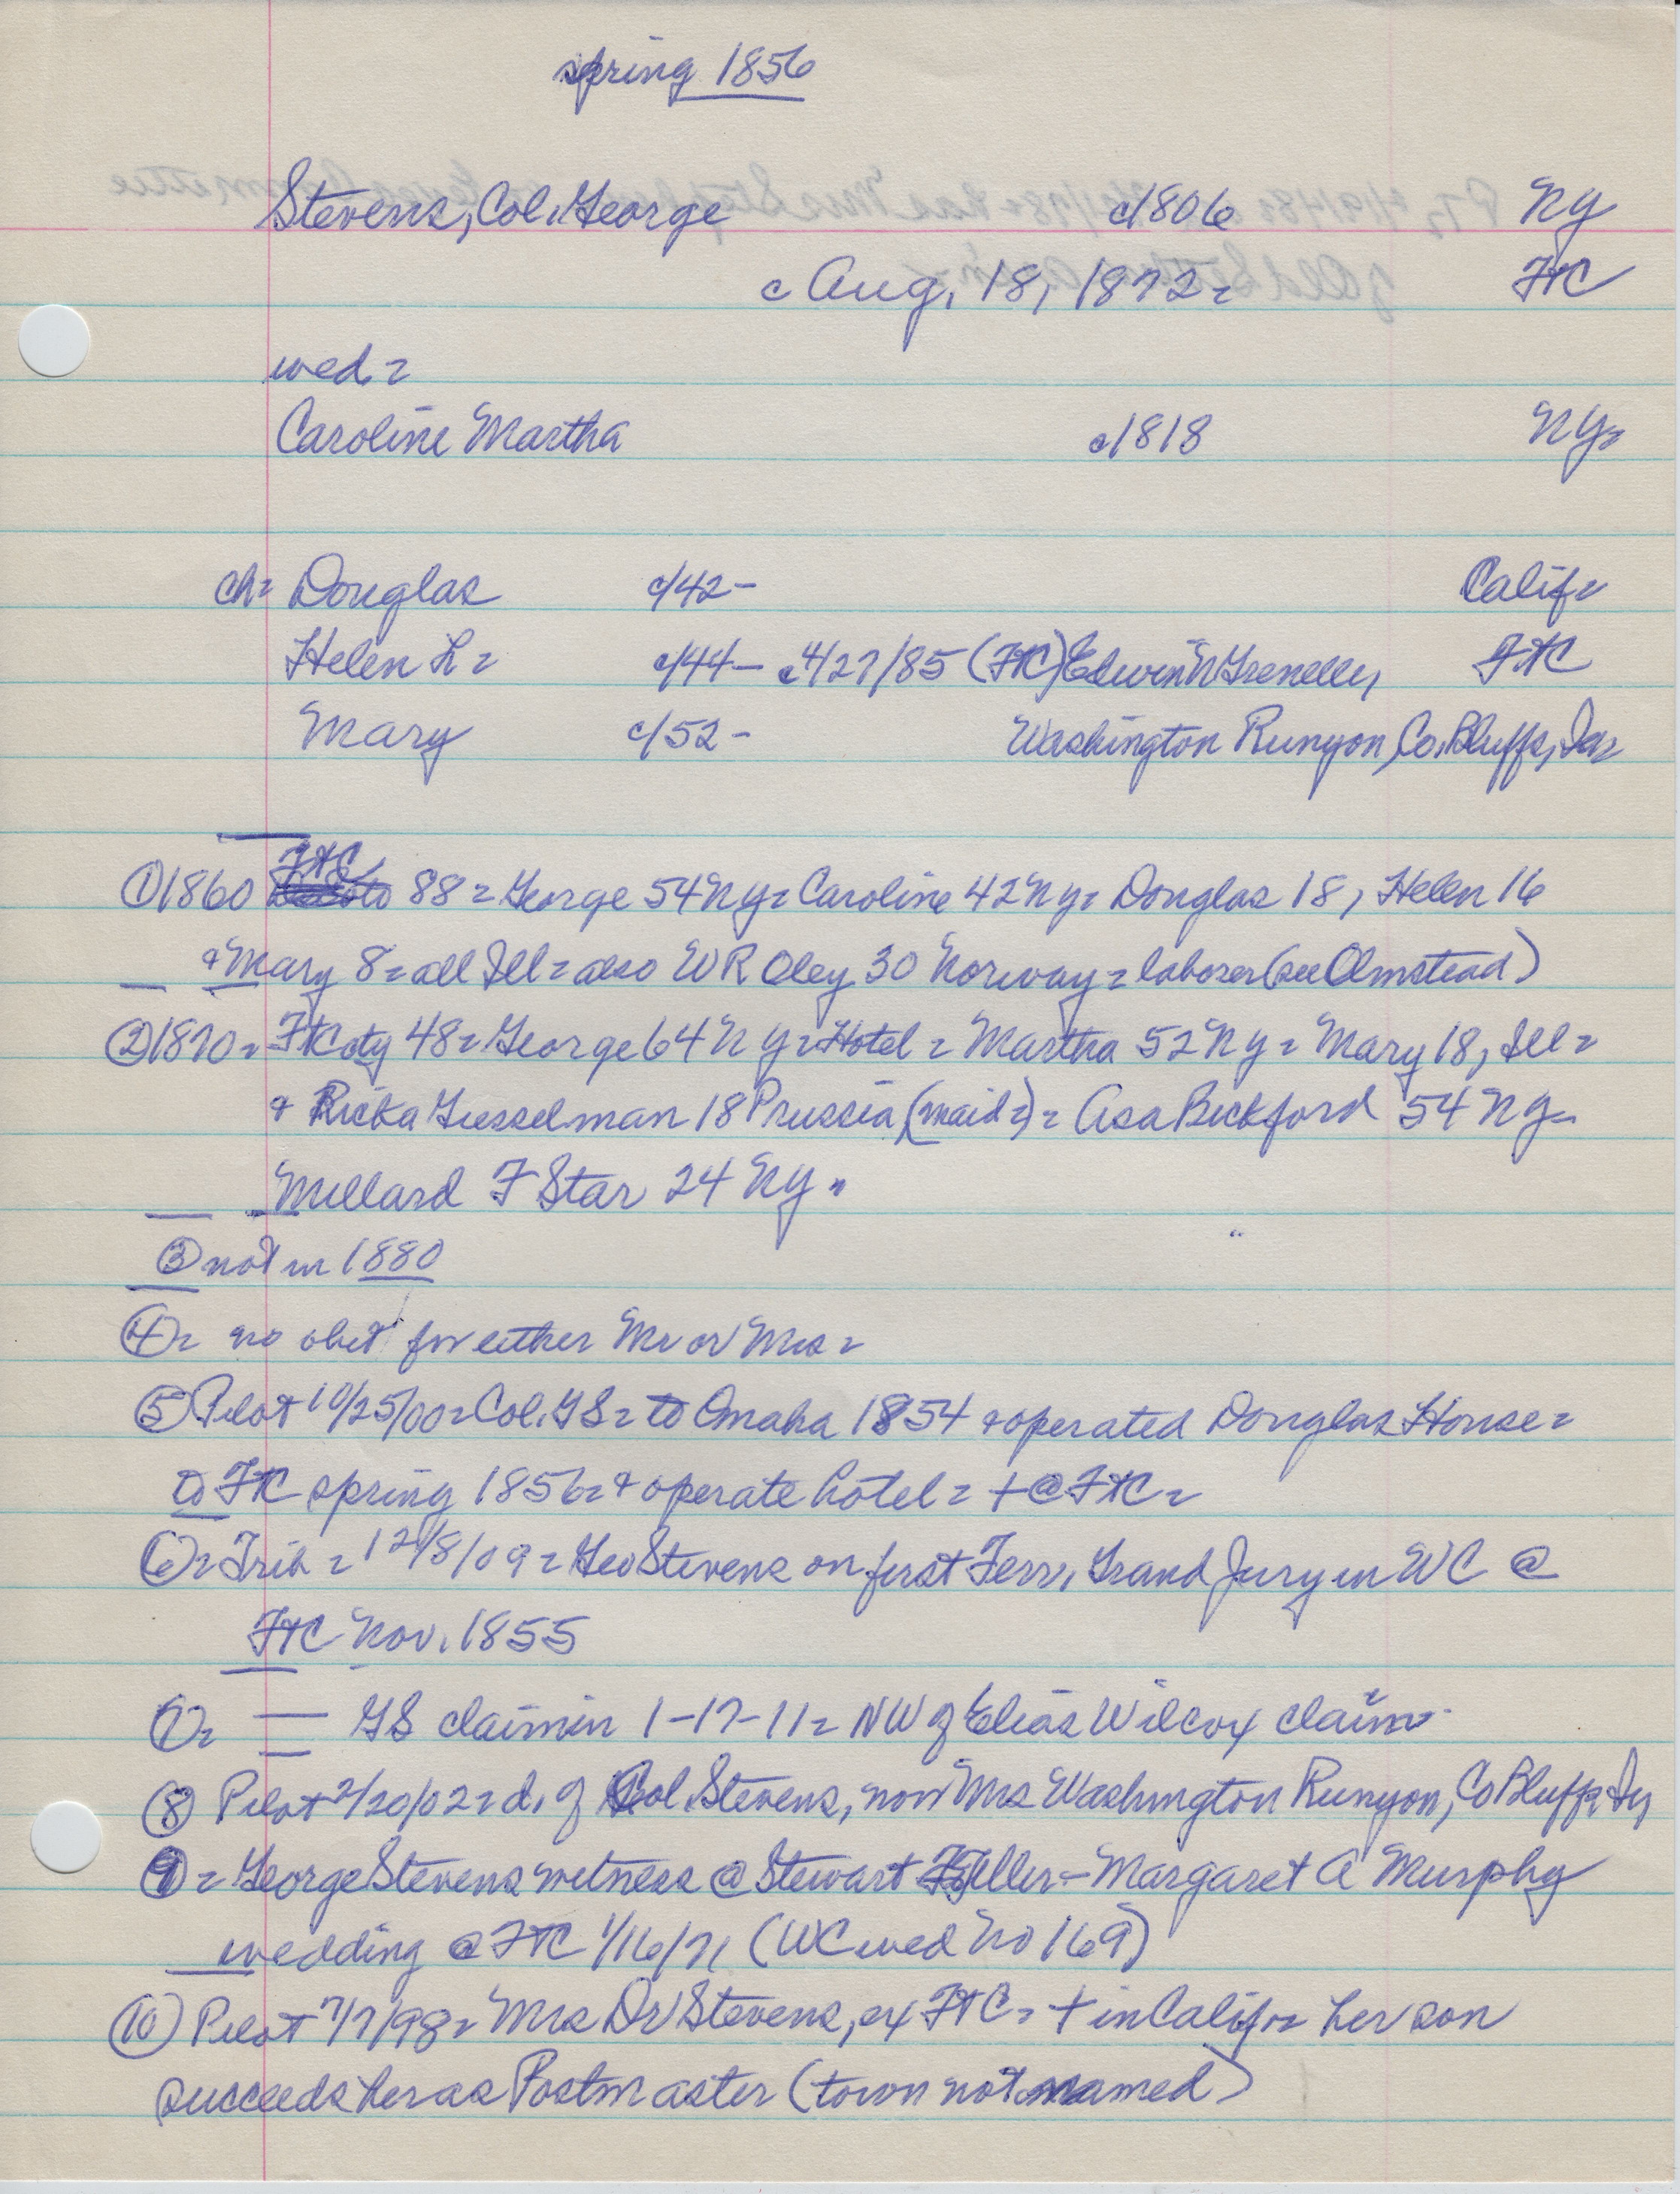 spring 1856
Stevens, Col. George c/1806 NY
c Aug. 18, 1872= FtC
wed=
Caroline Martha c/1818 NY=
ch= Douglas c/42- Calif=
Helen L= c/44- c4/27/85 (FtC) Edwin N Grenelle, FtC
Mary c/52- Washington Runyon, Co. Bluffs, Ia=
① 1860 FtC 88= George 54 NY= Caroline 42 NY= Douglas 18, Helen 16
+ Mary 8= all Ill= also WR Oley 30 Norway= laborer (see Olmstead)
② 1870= FtC cty 48= George 64 NY= Hotel= Martha 52 NY= Mary 18, Ill=
+ Ricka Giesselman 18 Prussia (maid=)= Asa Beckford 54 NY=
Millard F Star 24 NY.
③ not in 1880
④= no obit for either Mr or Mrs=
⑤ Pilot 10/25/00= Col. GS= to Omaha 1854 + operated Douglas House=
to FtC spring 1856= + operate hotel= + @ FtC=
⑥= Trib= 12/8/09= Geo Stevens on first Terr. Grand Jury in WC @
FtC Nov. 1855
⑦= — GS claim in 1-17-11= NW of Elias Wilcox claim.
⑧ Pilot 2/20/02= d. of Col. Stevens, now Mrs Washington Runyon, Co Bluffs, Ia
⑨= George Stevens witness @ Stewart Fuller- Margaret A Murphy
wedding @ FtC 1/16/71 (WC wed No 169)
⑩ Pilot 7/7/98= Mrs Dr Stevens, ex FtC= + in Calif= her son
succeeds her as Postmaster (town not named)